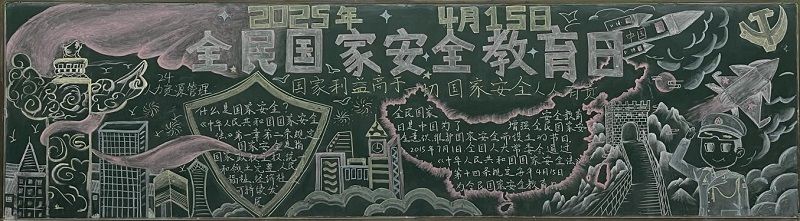 2025年 4月15日
全民国家安全教育日
24
人力资源管理
国家利益高于一切 国家安全人人有责
中国
什么是国家安全?
《中华人民共和国国家安全
法》第一章第二条规定
国家安全是指
国家政权、主权、统一
和领土完整、人民
福祉、经济社
会可持续发
展
全民国家安全教育
日是中国为了增强全民国家安
全意识,维护国家安全而设立的节日
2015年7月1日全国人大常委会通过
《中华人民共和国国家安全法》
第十四条规定每年4月15日
为全民国家安全教育日